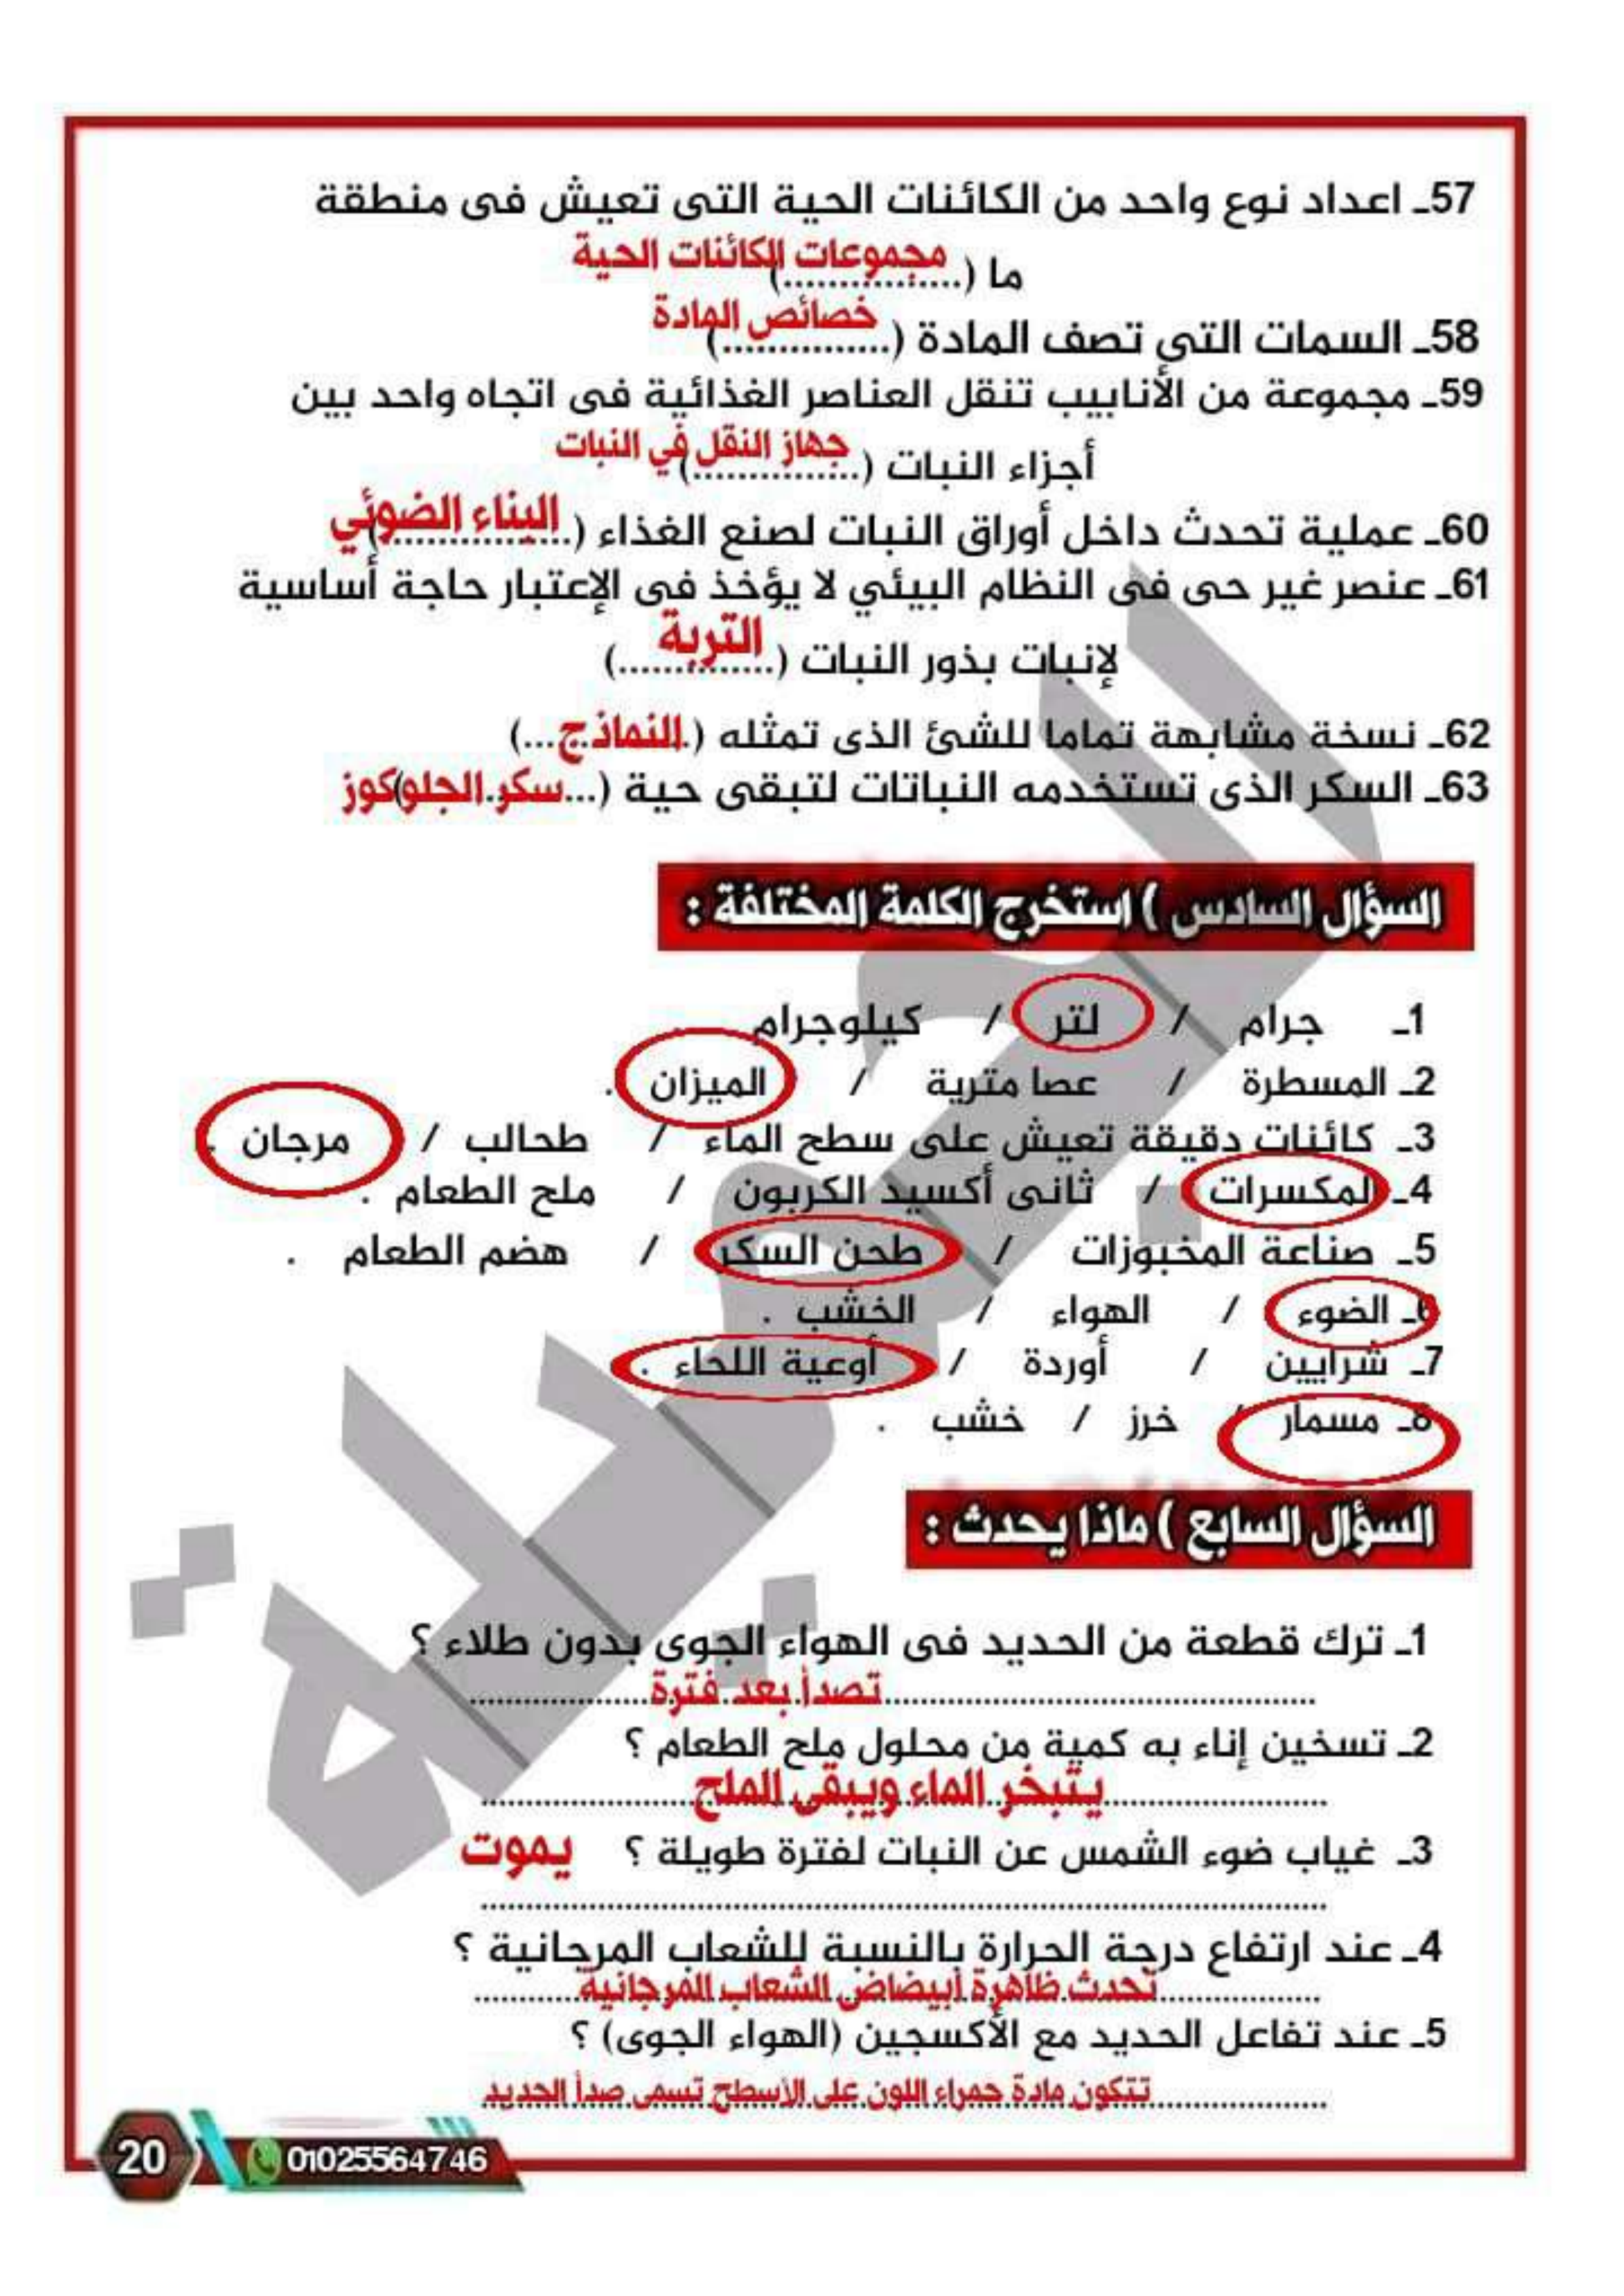 57ـ اعداد نوع واحد من الكائنات الحية التى تعيش فى منطقة
ما (................) مجموعات الكائنات الحية
58ـ السمات التي تصف المادة (...............) خصائص المادة
59ـ مجموعة من الأنابيب تنقل العناصر الغذائية فى اتجاه واحد بين
أجزاء النبات (...............) جهاز النقل في النبات
60ـ عملية تحدث داخل أوراق النبات لصنع الغذاء (................) البناء الضوئي
61ـ عنصر غير حى فى النظام البيئي لا يؤخذ فى الإعتبار حاجة أساسية
لإنبات بذور النبات (..............) التربة
62ـ نسخة مشابهة تماما للشئ الذى تمثله (.النماذج...)
63ـ السكر الذى تستخدمه النباتات لتبقى حية (...سكر الجلوكوز)
السؤال السادس ) استخرج الكلمة المختلفة :
1ـ جرام / لتر / كيلوجرام .
2ـ المسطرة / عصا مترية / الميزان .
3ـ كائنات دقيقة تعيش على سطح الماء / طحالب / مرجان .
4ـ المكسرات / ثانى أكسيد الكربون / ملح الطعام .
5ـ صناعة المخبوزات / طحن السكر / هضم الطعام .
6ـ الضوء / الهواء / الخشب .
7ـ شرايين / أوردة / أوعية اللحاء .
8ـ مسمار / خرز / خشب .
السؤال السابع ) ماذا يحدث :
1ـ ترك قطعة من الحديد فى الهواء الجوى بدون طلاء ؟
تصدأ بعد فترة
2ـ تسخين إناء به كمية من محلول ملح الطعام ؟
يتبخر الماء ويبقى الملح
3ـ غياب ضوء الشمس عن النبات لفترة طويلة ؟ يموت
4ـ عند ارتفاع درجة الحرارة بالنسبة للشعاب المرجانية ؟
تحدث ظاهرة ابيضاض الشعاب المرجانية
5ـ عند تفاعل الحديد مع الأكسجين (الهواء الجوى) ؟
تتكون مادة حمراء اللون على الأسطح تسمى صدأ الحديد
20 01025564746